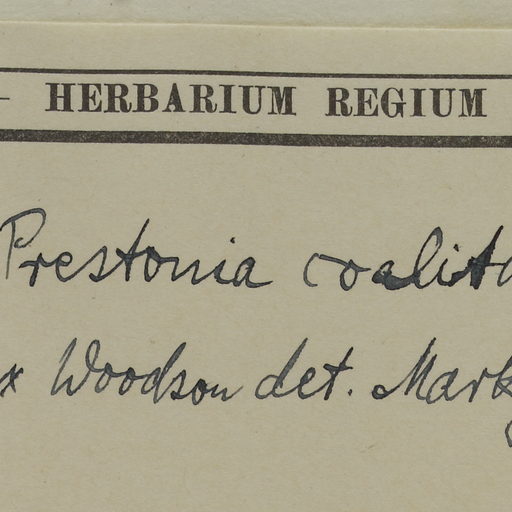 — HERBARIUM REGIUM
Prestonia coalita
x Woodson det. Markg